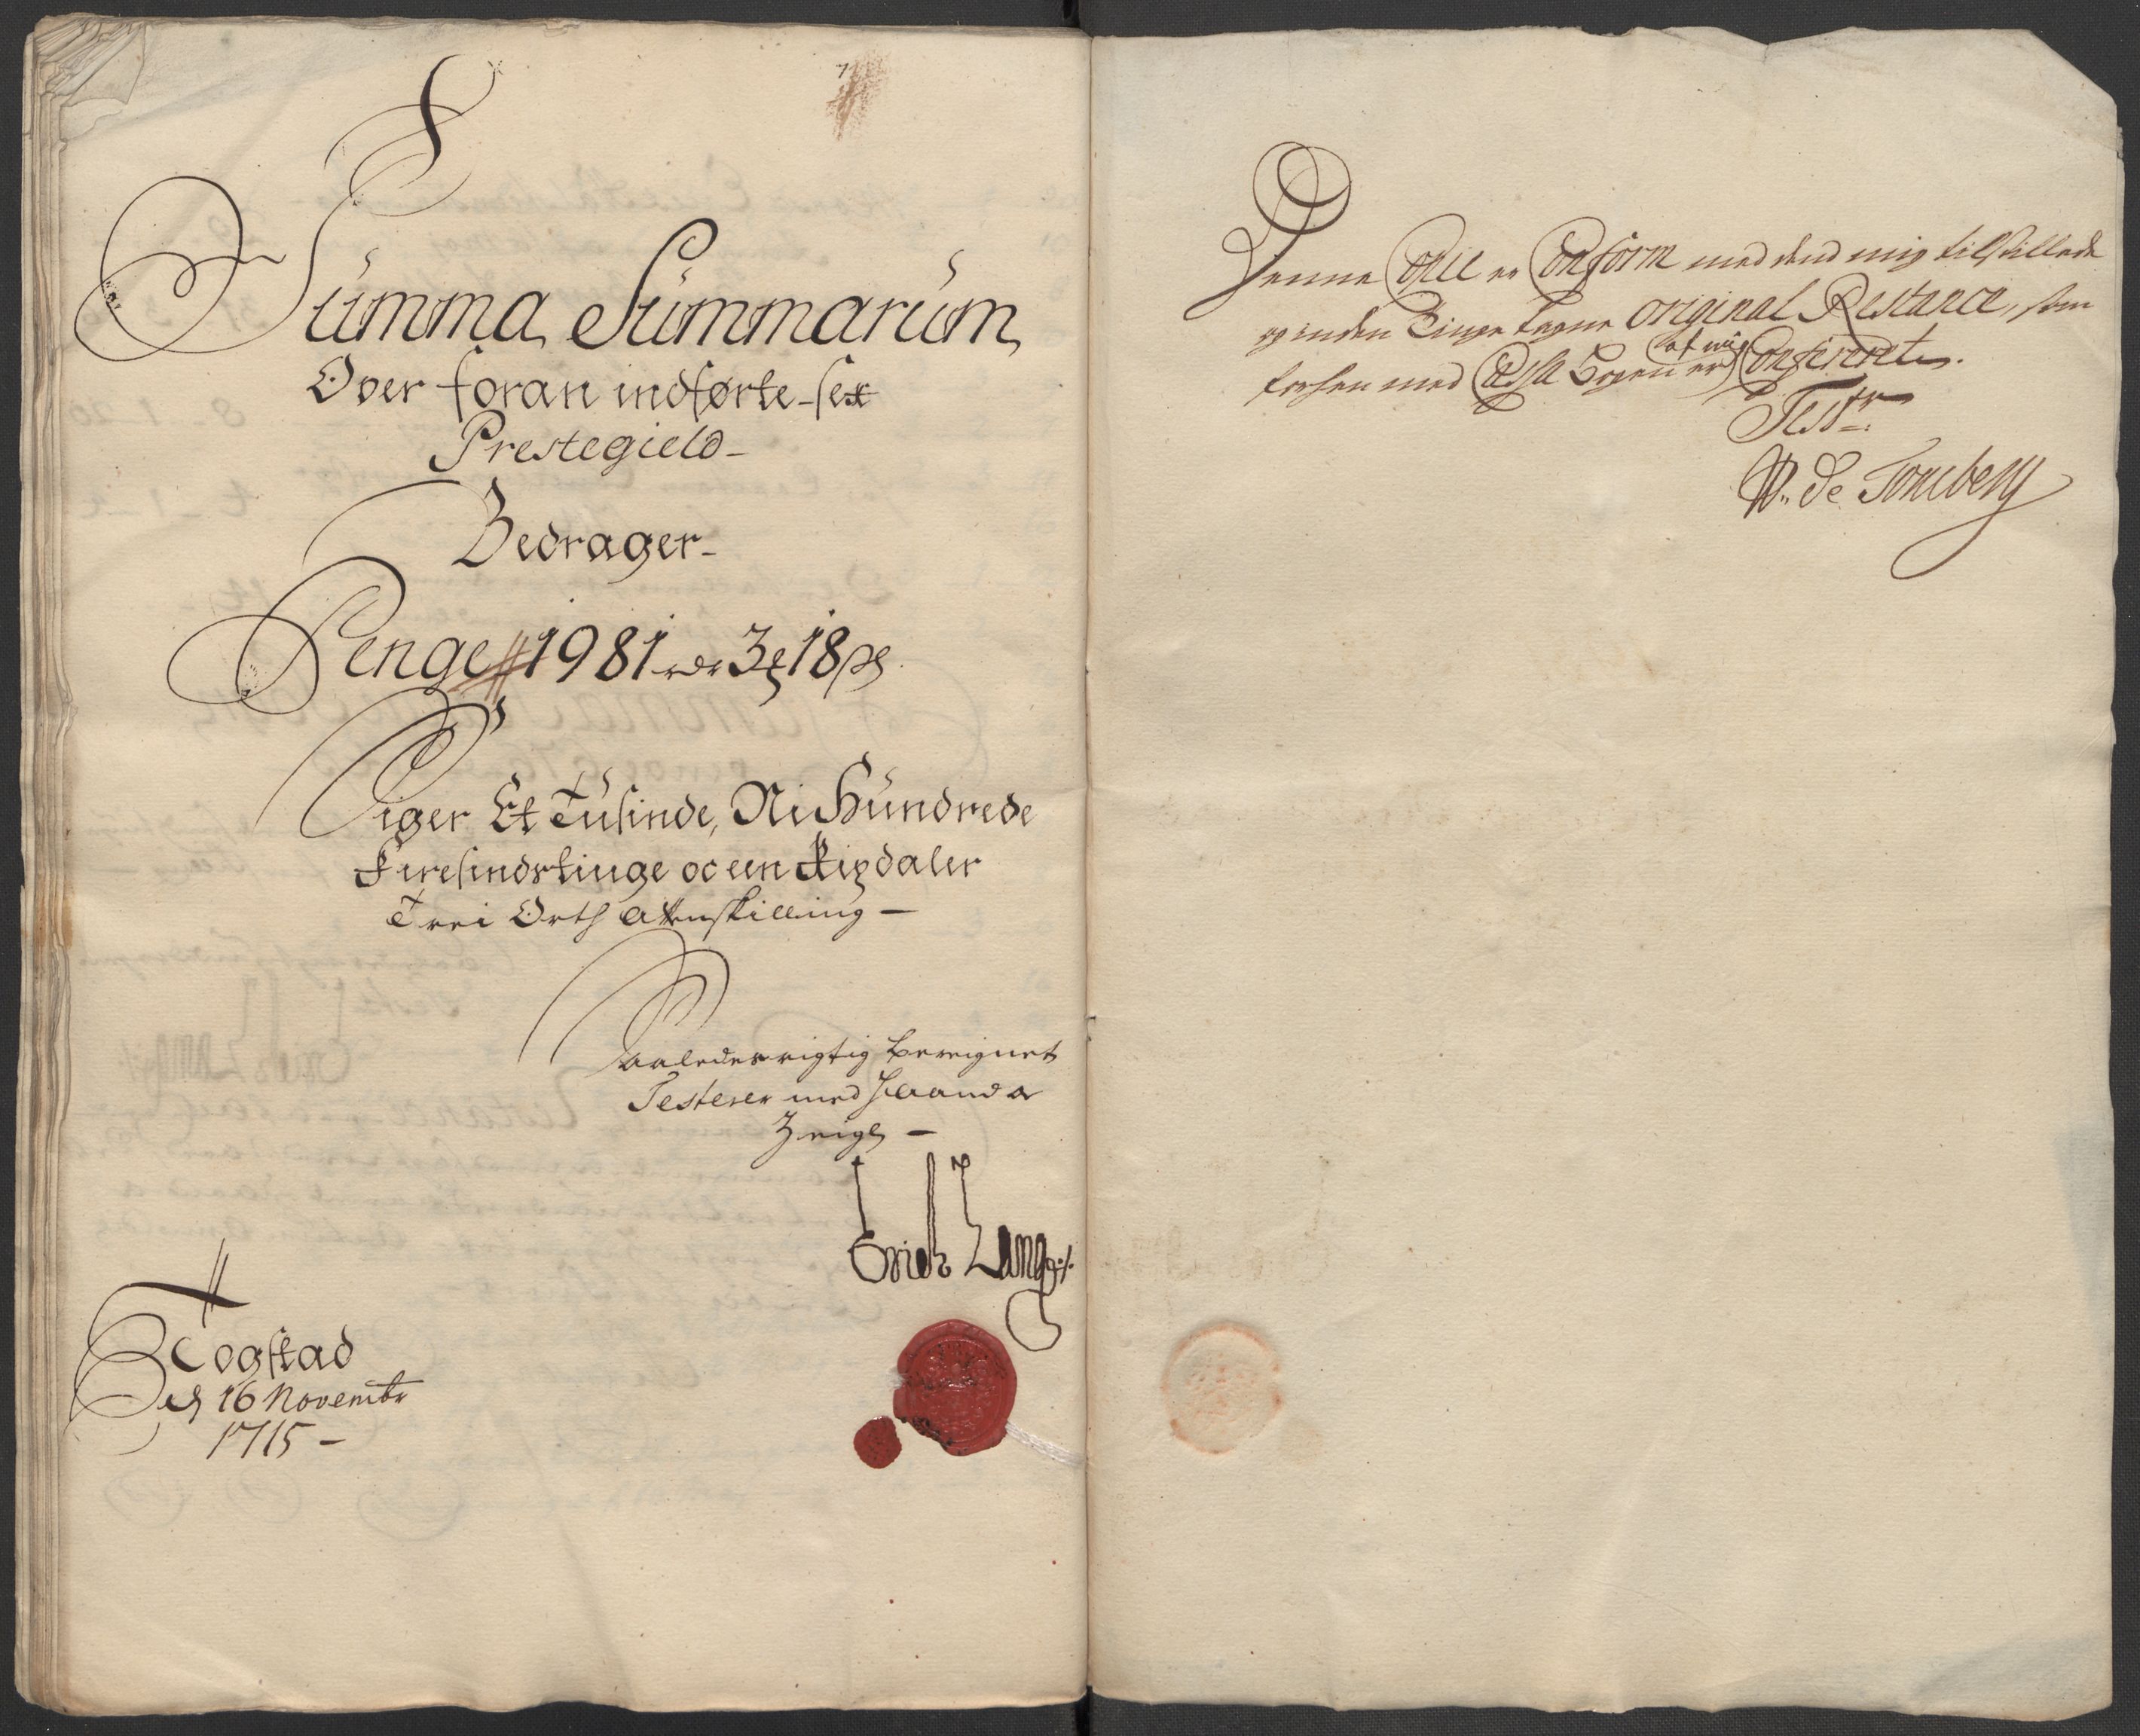 Summa Summarum
Over foran indførte sex
Prestegield
Bedrager
Penge 1981 rdr 3 ₰ 18 ß
Siger Et Tusinde, Ni Hundrede
Firesindstiuge oc een Rixdaler
Trei Orth Atenskilling
Saaledes rigtig beregnet
Testerer med Haand &
Zeigl
Erich Lang
Togstad
d 16 Novembr
1715
Denne Copie er Conform med dend mig tilstillede
og inden Tinge lagne original Restance, som
Cassa Bogen er af mig Confereret.
Testr
W. de Tonsberg